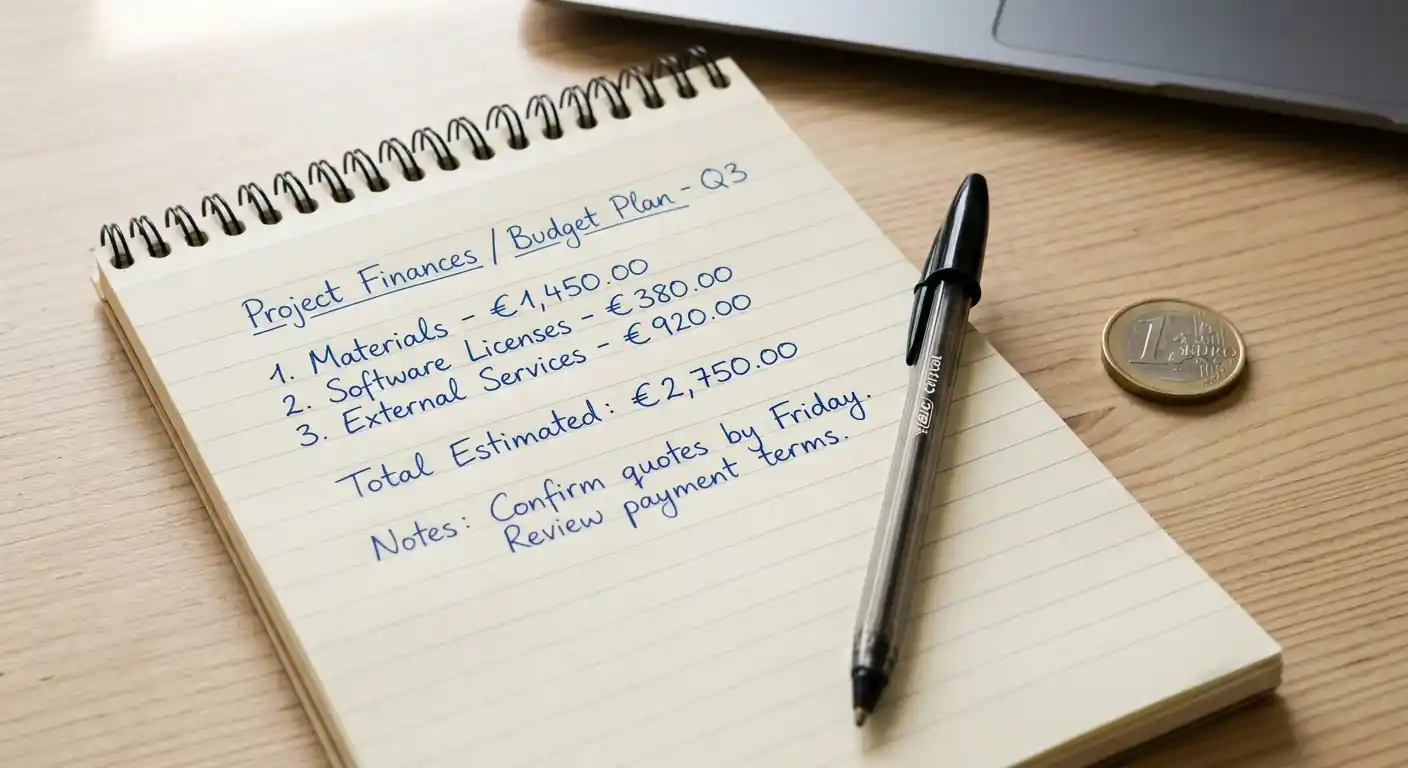 Project Finances / Budget Plan - Q3
1. Materials - €1,450.00
2. Software Licenses - €380.00
3. External Services - €920.00
Total Estimated: €2,750.00
Notes: Confirm quotes by Friday.
Review payment terms.
BIC Cristal
1 EURO